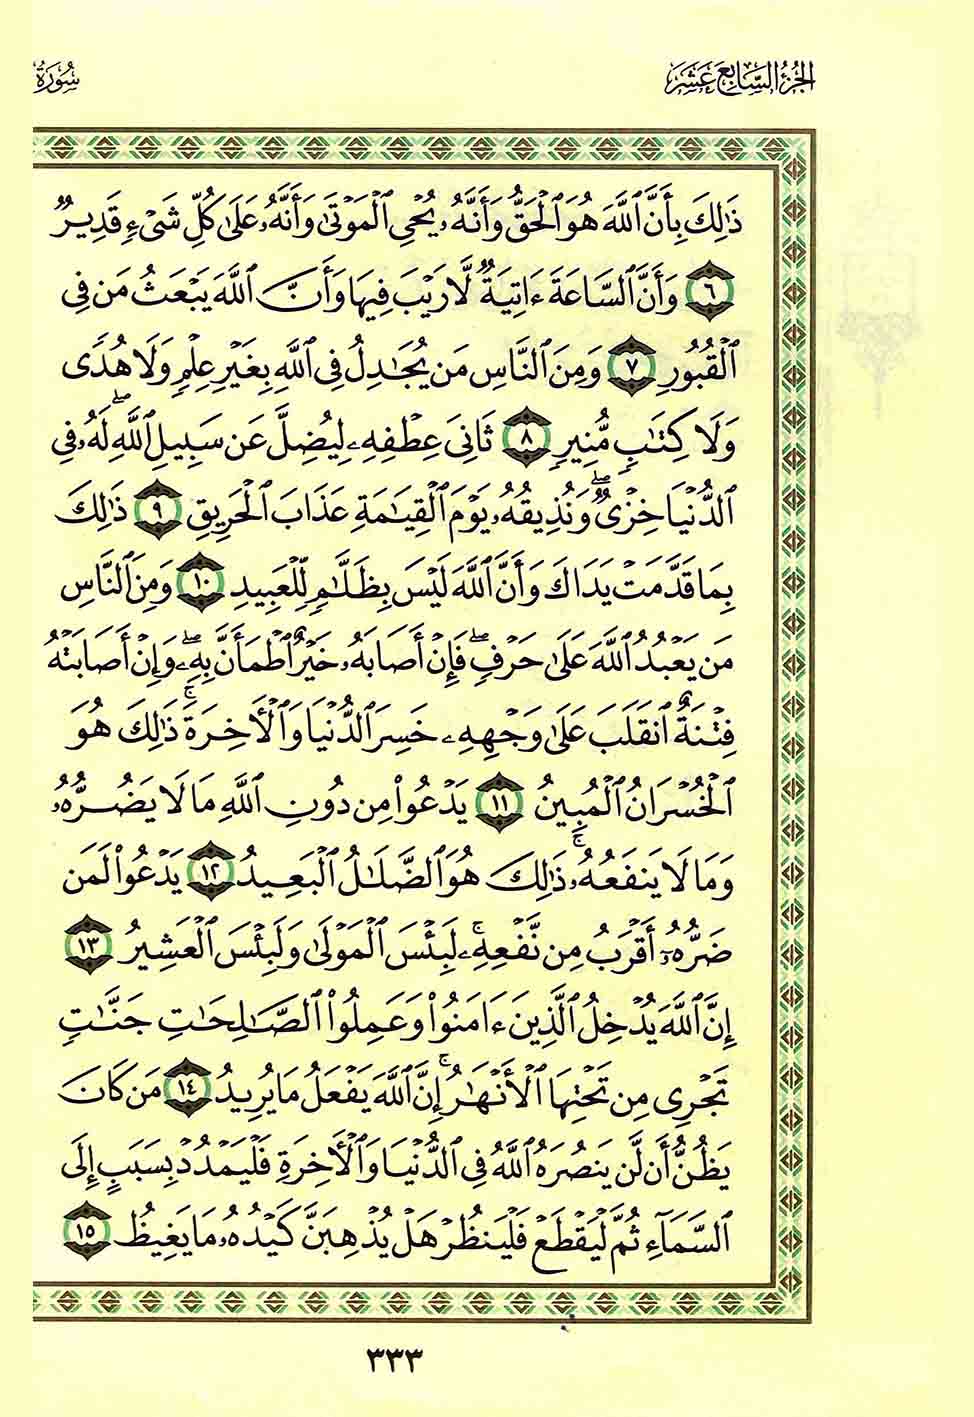 الجزء السابع عشر
سُورَةُ
ذَٰلِكَ بِأَنَّ ٱللَّهَ هُوَ ٱلْحَقُّ وَأَنَّهُۥ يُحْىِ ٱلْمَوْتَىٰ وَأَنَّهُۥ عَلَىٰ كُلِّ شَىْءٍ قَدِيرٌ
٦ وَأَنَّ ٱلسَّاعَةَ ءَاتِيَةٌ لَّا رَيْبَ فِيهَا وَأَنَّ ٱللَّهَ يَبْعَثُ مَن فِى
ٱلْقُبُورِ ٧ وَمِنَ ٱلنَّاسِ مَن يُجَٰدِلُ فِى ٱللَّهِ بِغَيْرِ عِلْمٍ وَلَا هُدًى
وَلَا كِتَٰبٍ مُّنِيرٍ ٨ ثَانِىَ عِطْفِهِۦ لِيُضِلَّ عَن سَبِيلِ ٱللَّهِ ۖ لَهُۥ فِى
ٱلدُّنْيَا خِزْىٌ ۖ وَنُذِيقُهُۥ يَوْمَ ٱلْقِيَٰمَةِ عَذَابَ ٱلْحَرِيقِ ٩ ذَٰلِكَ
بِمَا قَدَّمَتْ يَدَاكَ وَأَنَّ ٱللَّهَ لَيْسَ بِظَلَّٰمٍ لِّلْعَبِيدِ ١٠ وَمِنَ ٱلنَّاسِ
مَن يَعْبُدُ ٱللَّهَ عَلَىٰ حَرْفٍ ۖ فَإِنْ أَصَابَهُۥ خَيْرٌ ٱطْمَأَنَّ بِهِۦ ۖ وَإِنْ أَصَابَتْهُ
فِتْنَةٌ ٱنقَلَبَ عَلَىٰ وَجْهِهِۦ خَسِرَ ٱلدُّنْيَا وَٱلْأَخِرَةَ ۚ ذَٰلِكَ هُوَ
ٱلْخُسْرَانُ ٱلْمُبِينُ ١١ يَدْعُوا۟ مِن دُونِ ٱللَّهِ مَا لَا يَضُرُّهُۥ
وَمَا لَا يَنفَعُهُۥ ۚ ذَٰلِكَ هُوَ ٱلضَّلَٰلُ ٱلْبَعِيدُ ١٢ يَدْعُوا۟ لَمَن
ضَرُّهُۥٓ أَقْرَبُ مِن نَّفْعِهِۦ ۚ لَبِئْسَ ٱلْمَوْلَىٰ وَلَبِئْسَ ٱلْعَشِيرُ ١٣
إِنَّ ٱللَّهَ يُدْخِلُ ٱلَّذِينَ ءَامَنُوا۟ وَعَمِلُوا۟ ٱلصَّٰلِحَٰتِ جَنَّٰتٍ
تَجْرِى مِن تَحْتِهَا ٱلْأَنْهَٰرُ ۚ إِنَّ ٱللَّهَ يَفْعَلُ مَا يُرِيدُ ١٤ مَن كَانَ
يَظُنُّ أَن لَّن يَنصُرَهُ ٱللَّهُ فِى ٱلدُّنْيَا وَٱلْأَخِرَةِ فَلْيَمْدُدْ بِسَبَبٍ إِلَى
ٱلسَّمَآءِ ثُمَّ لْيَقْطَعْ فَلْيَنظُرْ هَلْ يُذْهِبَنَّ كَيْدُهُۥ مَا يَغِيظُ ١٥
٣٣٣